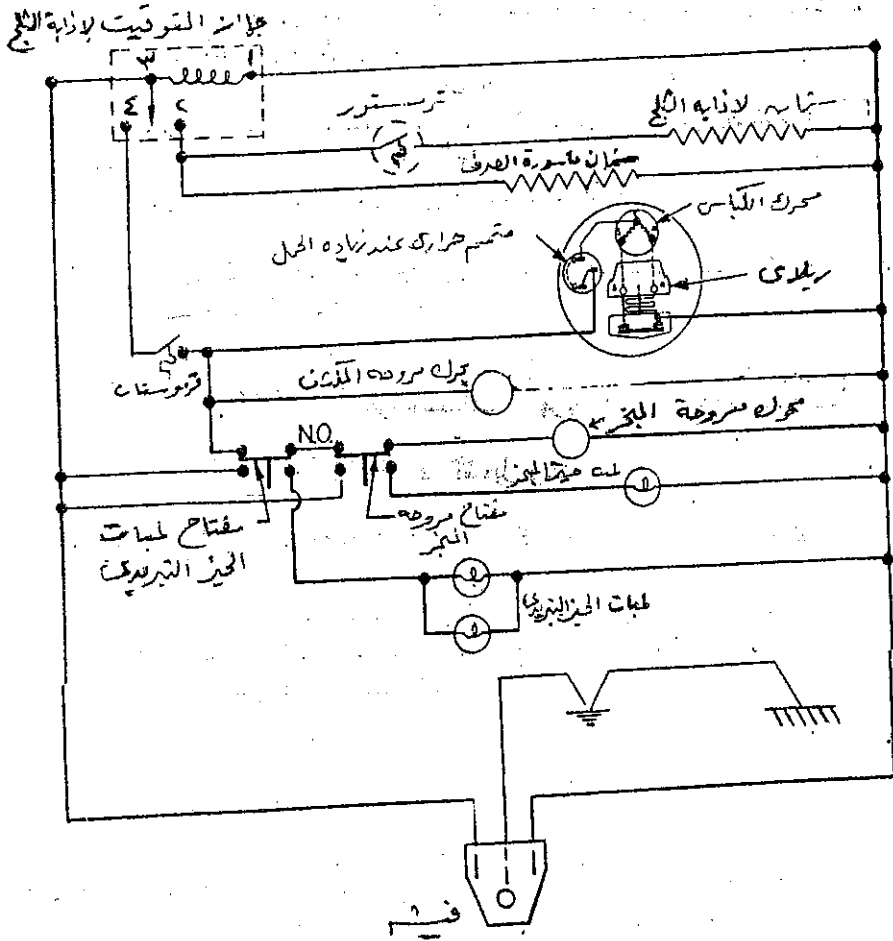 جهاز التوقيت لإذابة الثلج
٣
١
٤
٢
ترمستور
سخان لاذابه الثلج
سخان ماسورة الصرف
محرك الكباس
متمم حرارى عند زياده الحمل
ريلاى
ترموستات
محرك مروحه المكثف
N.O.
محرك مروحة المبخر
مفتاح لمبات
الحيز التبريدى
مفتاح مروحه
المبخر
لمبات الحيز التبريدى
فيشه